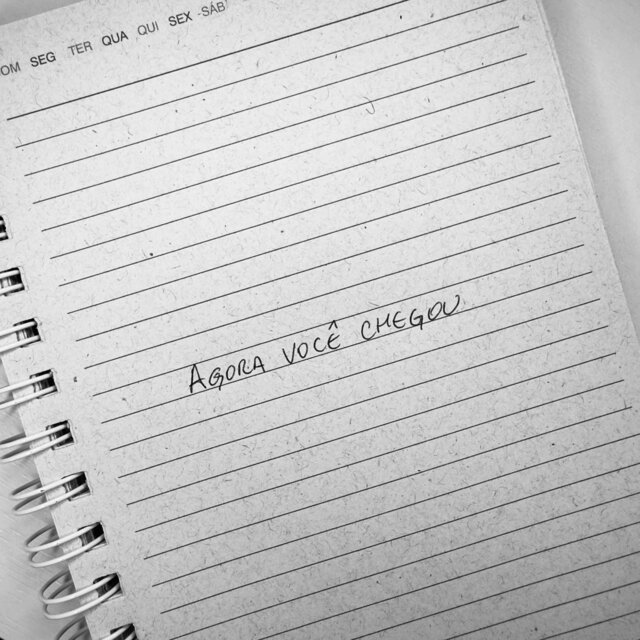 DOM SEG TER QUA QUI SEX SÁB
AGORA VOCÊ CHEGOU